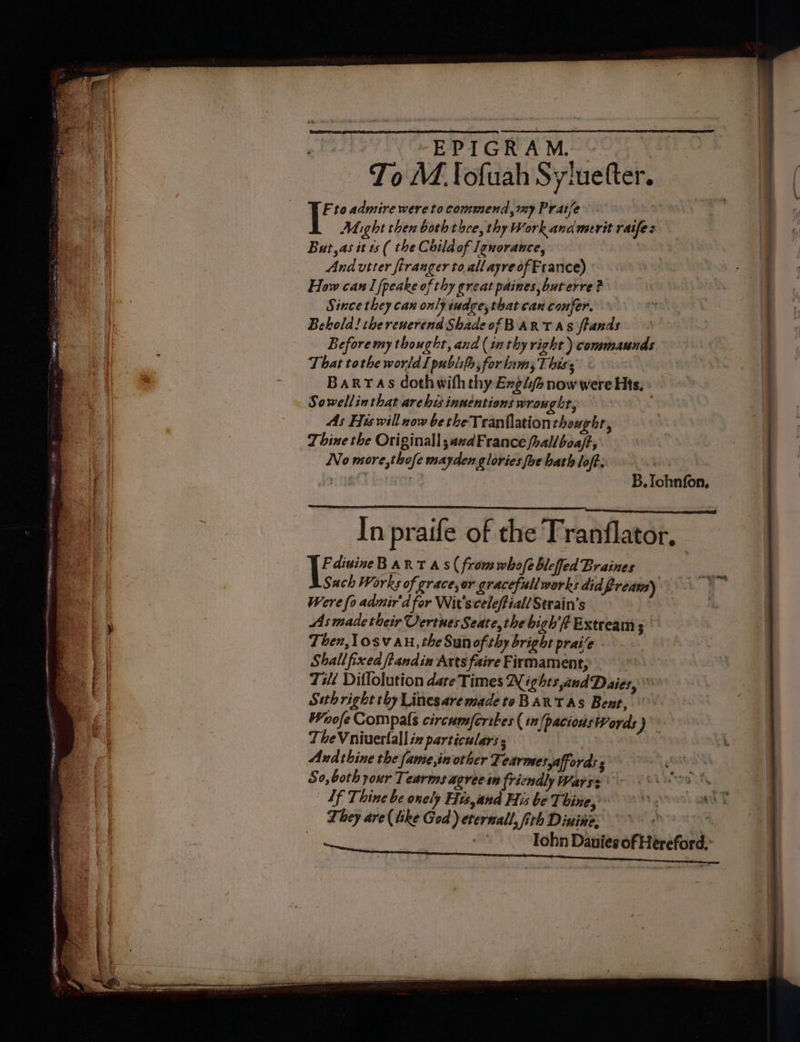 EPIGRAM.
To M. Iosuah Syluester.
IF to admire were to commend, my Praise
Might then both thee, thy Work and merit raise:
But, as it is (the Child of Ignorance,
And vtter stranger to all ayre of France)
How can I speake of thy great paines, but erre?
Since they can only iudge, that can confer.
Behold! the reuerend Shade of BARTAS stands
Before my thought, and (in thy right) commaunds
That to the world I publish, for him, This;
BARTAS doth wish thy English now were His.
So well in that are his inuentions wrought,
As His will now be the Translation thought,
Thine the Originall; and France shall boast,
No more, those mayden glories she hath lost.
B. Iohnson.
In praise of the Translator.
IF diuine BARTAS (from whose blessed Braines
Such Works of grace, or gracefull works did stream)
Were so admir'd for Wit's celestiall Strain's
As made their Vertues Seate, the high'st Extream;
Then, IOSVAH, the Sun of thy bright praise
Shall fixed stand in Arts faire Firmament,
Till Dissolution date Times Nights, and Daies,
Sith right thy Lines are made to BARTAS Bent,
Whose Compass circumscribes (in spacious Words)
The Vniuersall in particulars;
And thine the same, in other Tearmes, affords;
So, both your Tearms agree in friendly Wars:
If Thine be onely His, and His be Thine,
They are (like God) eternall, sith Diuine.
Iohn Dauies of Hereford.